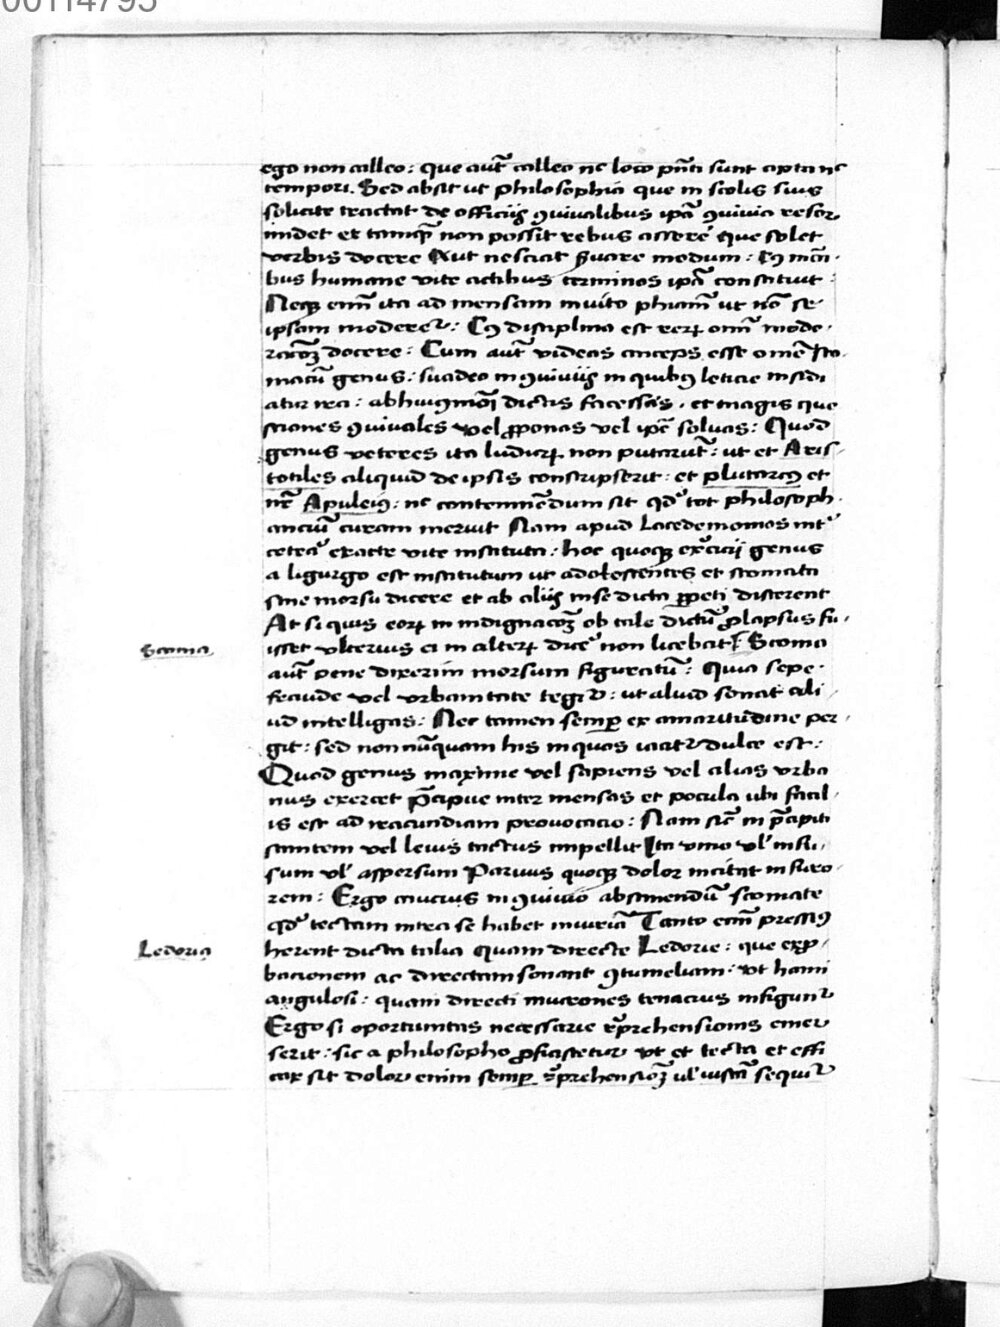 00114795
ego non calleo : Que aut̄ calleo nc loco pn̄ti sunt apta nc
tempori. Sed absit ut philosophia que in scolis suis
solicite tractat de officijs ꝯuiualibus ipā ꝯuiuia resor
midet et tamq̄ non possit rebus asserē que solet
verbis docere Aut nesciat ꝓuare modum : Cꝰ mān
bus humane vite actibus terminos ipā constituit :
Neqꝫ enī ita ad mensam inuito phiam̄ ut nō se
ipsam moderet᷑ : Cꝰ disciplina est reꝝ om̄ mode
racōꝫ docere : Cum aut̄ videas anceps esse omē sto
macū genus : suadeo in ꝯuiuijs in quibꝰ leticie insidi
atur ira : abhuiꝰmōi dictis facessas . et magis que
stiones ꝯuiuales vel ꝓponas vel ipē soluas : Quod
genus veteres ita ludicꝝ non putarūt : ut et Aris
totiles aliquid de ipsis conscripserit : et plutarcꝰ et
nr̄ Apuleiꝰ : nc contemnēdum sit qd̓ tot philosoph
anciū curam meruit Nam apud Lacedemonios int̓
cetea̓ exacte vite instituta : hoc quoqꝫ ex̓cicij genus
a ligurgo est institutum ut adolescentes et scomata
sine morsu dicere et ab alijs in se dicta ꝑpeti discerent
At si quis eoꝝ in indignacōꝫ ob tale dictū ꝓlapsus fu
isset vlterius ei in alteꝝ dicē non licebat Scoma
Scoma
aut̄ pene dixerim morsum figuratū : Quia sepe
fraude vel vrbanitate tegit᷑ : ut aliud sonat ali
ud intelligas : Nec tamen semꝑ ex amaritudine per
git : sed non nūquam his in quos iacit᷑ dulce est :
Quod genus maxime vel sapiens vel alias vrba
nus exercet p̄cipue inter mensas et pocula ubi facil
is est ad iracundiam prouocacio : Nam sic̄ in p̄cipiti
stantem vel leuis tactus impellit Ita vino vl̓ insu
sum vl̓ aspersum Paruus quoqꝫ dolor incitat in suro
rem : Ergo caucius in ꝯuiuio abstinendū scomate
qd̓ tectam intra se habet iniuriā Tanto enī pressiꝰ
herent dicta talia quam directe Ledorie : que exꝓ
Ledoria
bacionem ac directam sonant ꝯtumeliam : vt hami
angulosi : quam directi mucrones tenacius infigunt᷑
Ergo si oportunitas necessarie rp̄rehensionis emer
serit : sic a philosopho ꝓficiscetur vt et tecta et effi
cax sit dolor enim semꝑ rp̄rehensiōꝫ ul̓ iustā sequit᷑